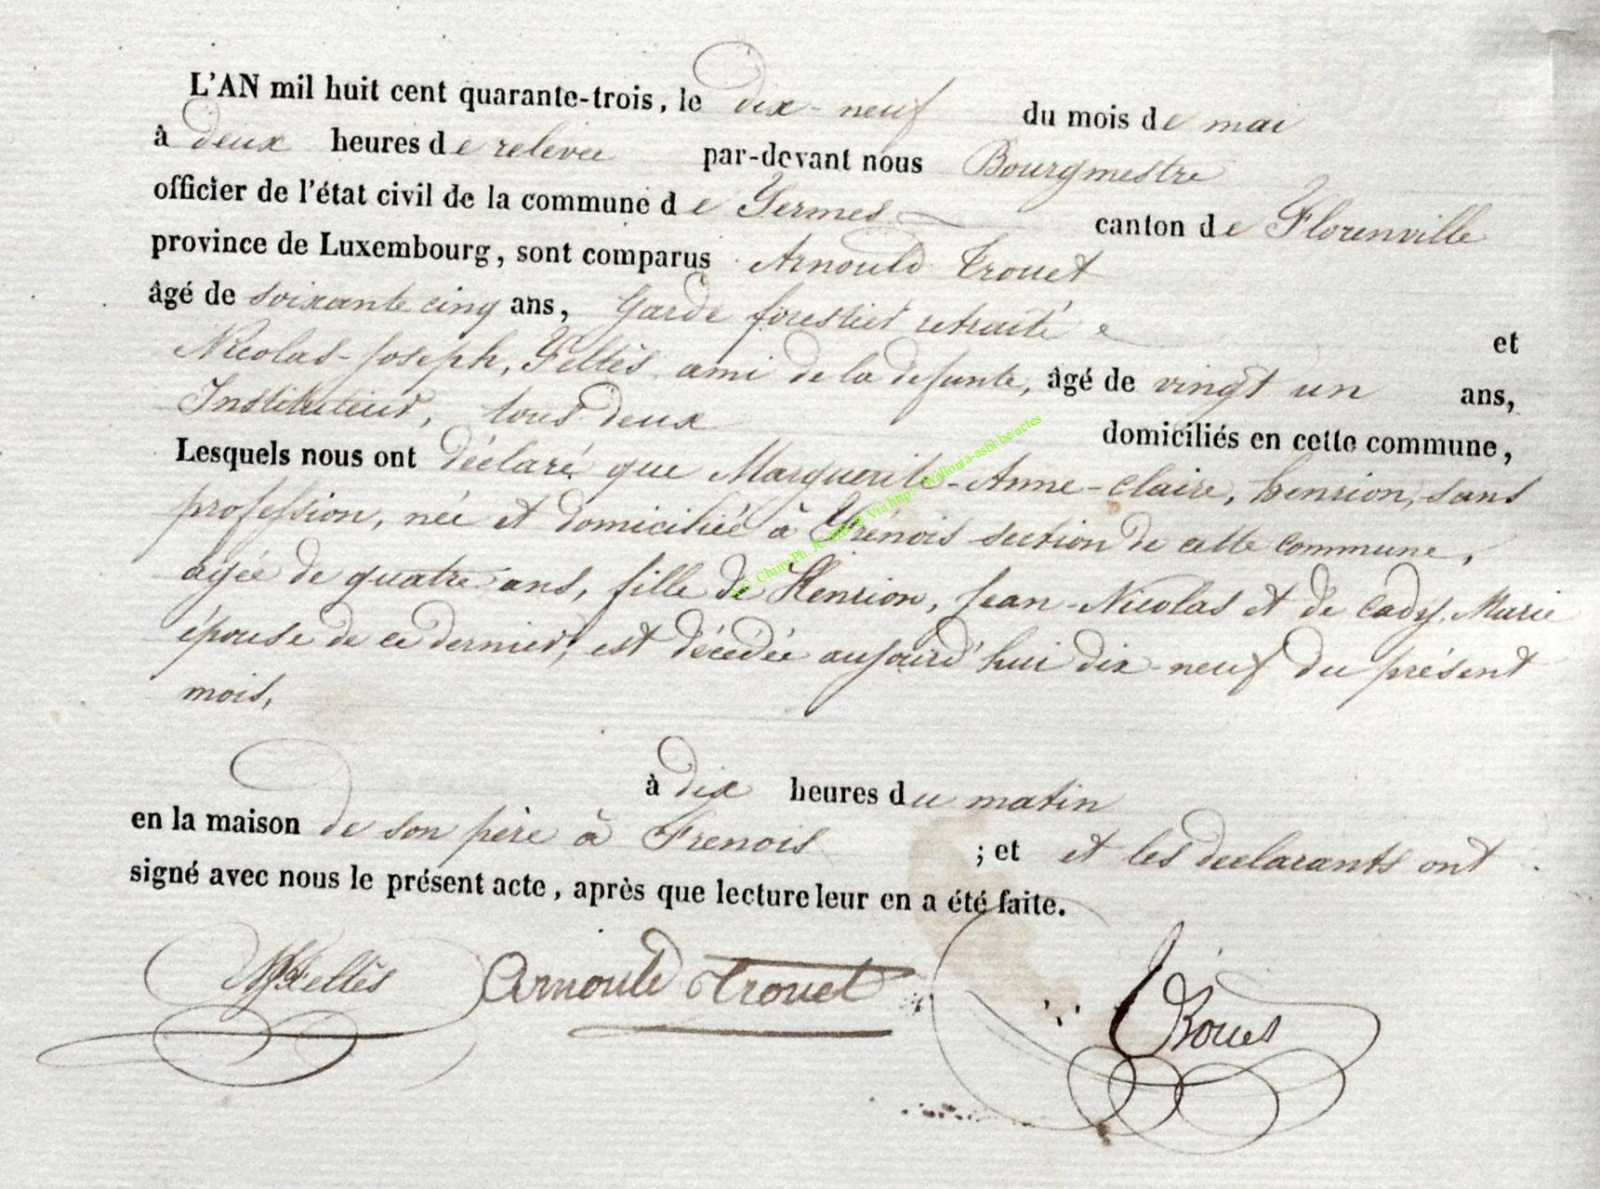 L'AN mil huit cent quarante-trois, le dix-neuf du mois de mai
à deux heures de relevée par-devant nous Bourgmestre
officier de l'état civil de la commune de Termes canton de Florenville
province de Luxembourg, sont comparus Arnould Trouet
âgé de soixante cinq ans, Garde forestier retraité et
Nicolas-Joseph, Feltès ami de la defunte, âgé de vingt un ans,
Instituteur, tous deux domiciliés en cette commune,
Lesquels nous ont déclaré que Marguerite-Anne-Claire, henrion, sans
profession, née et domiciliée à Frénois section de cette commune,
agée de quatre ans, fille de Henrion, Jean-Nicolas et de Cady, Marie
épouse de ce dernier, est décédée aujourd'hui dix-neuf du présent
mois,
à dix heures du matin
en la maison de son père à Frenois ; et et les declarants ont
signé avec nous le présent acte, après que lecture leur en a été faite.
NJFeltès Arnould Trouet